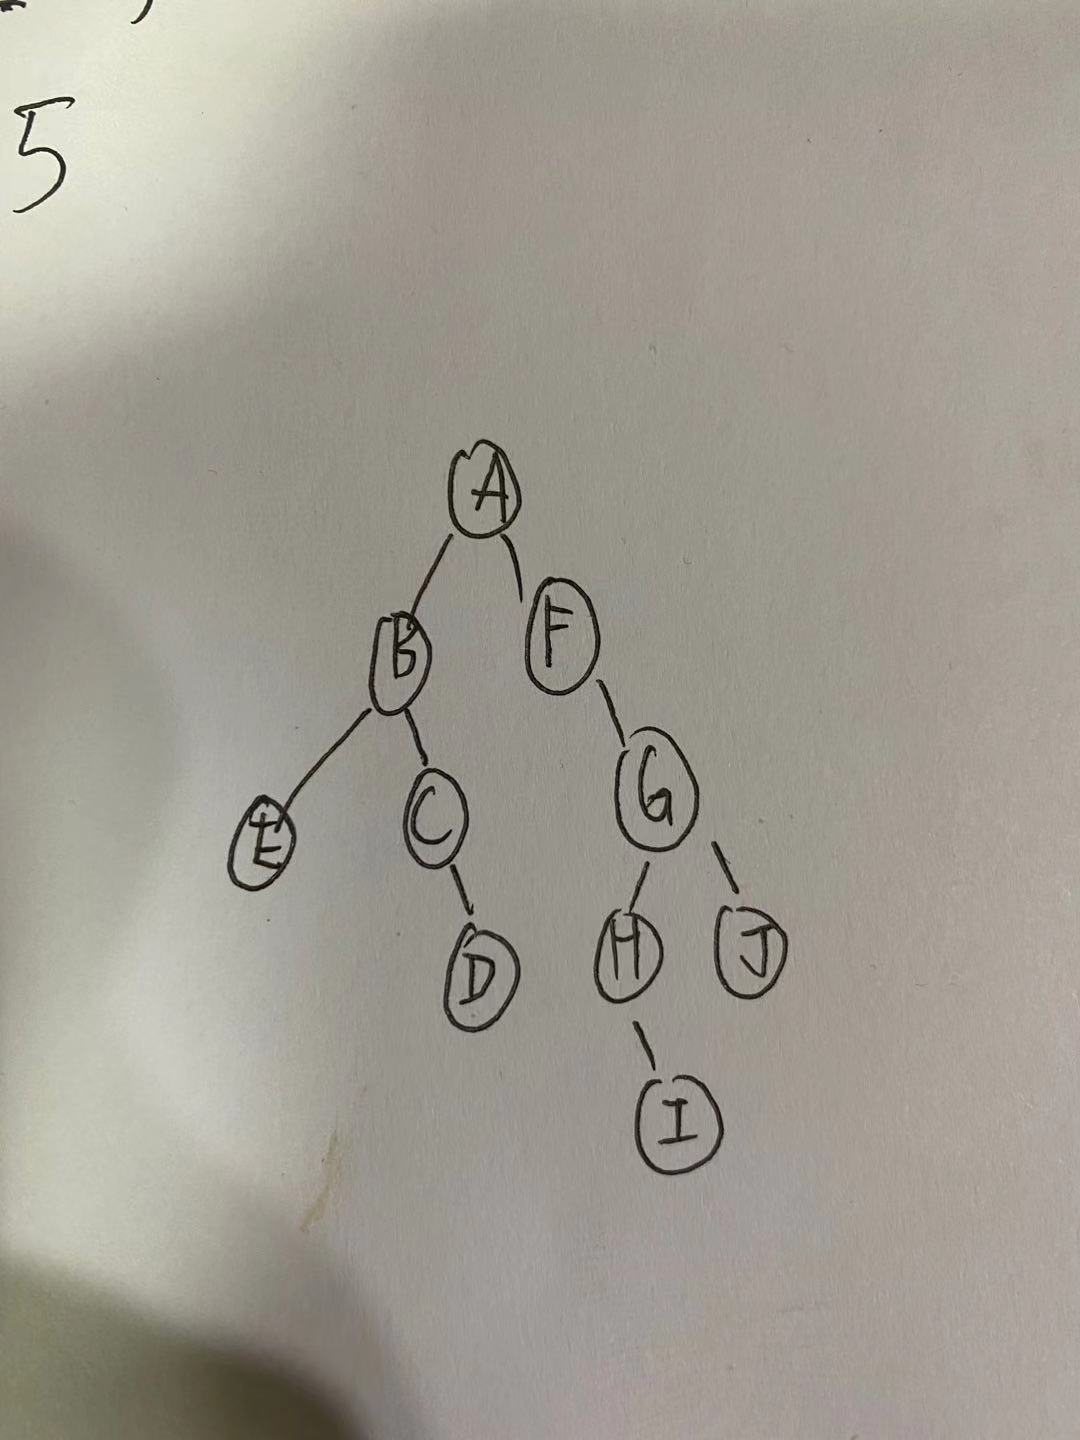 5
A
B F
E C G
D H J
I